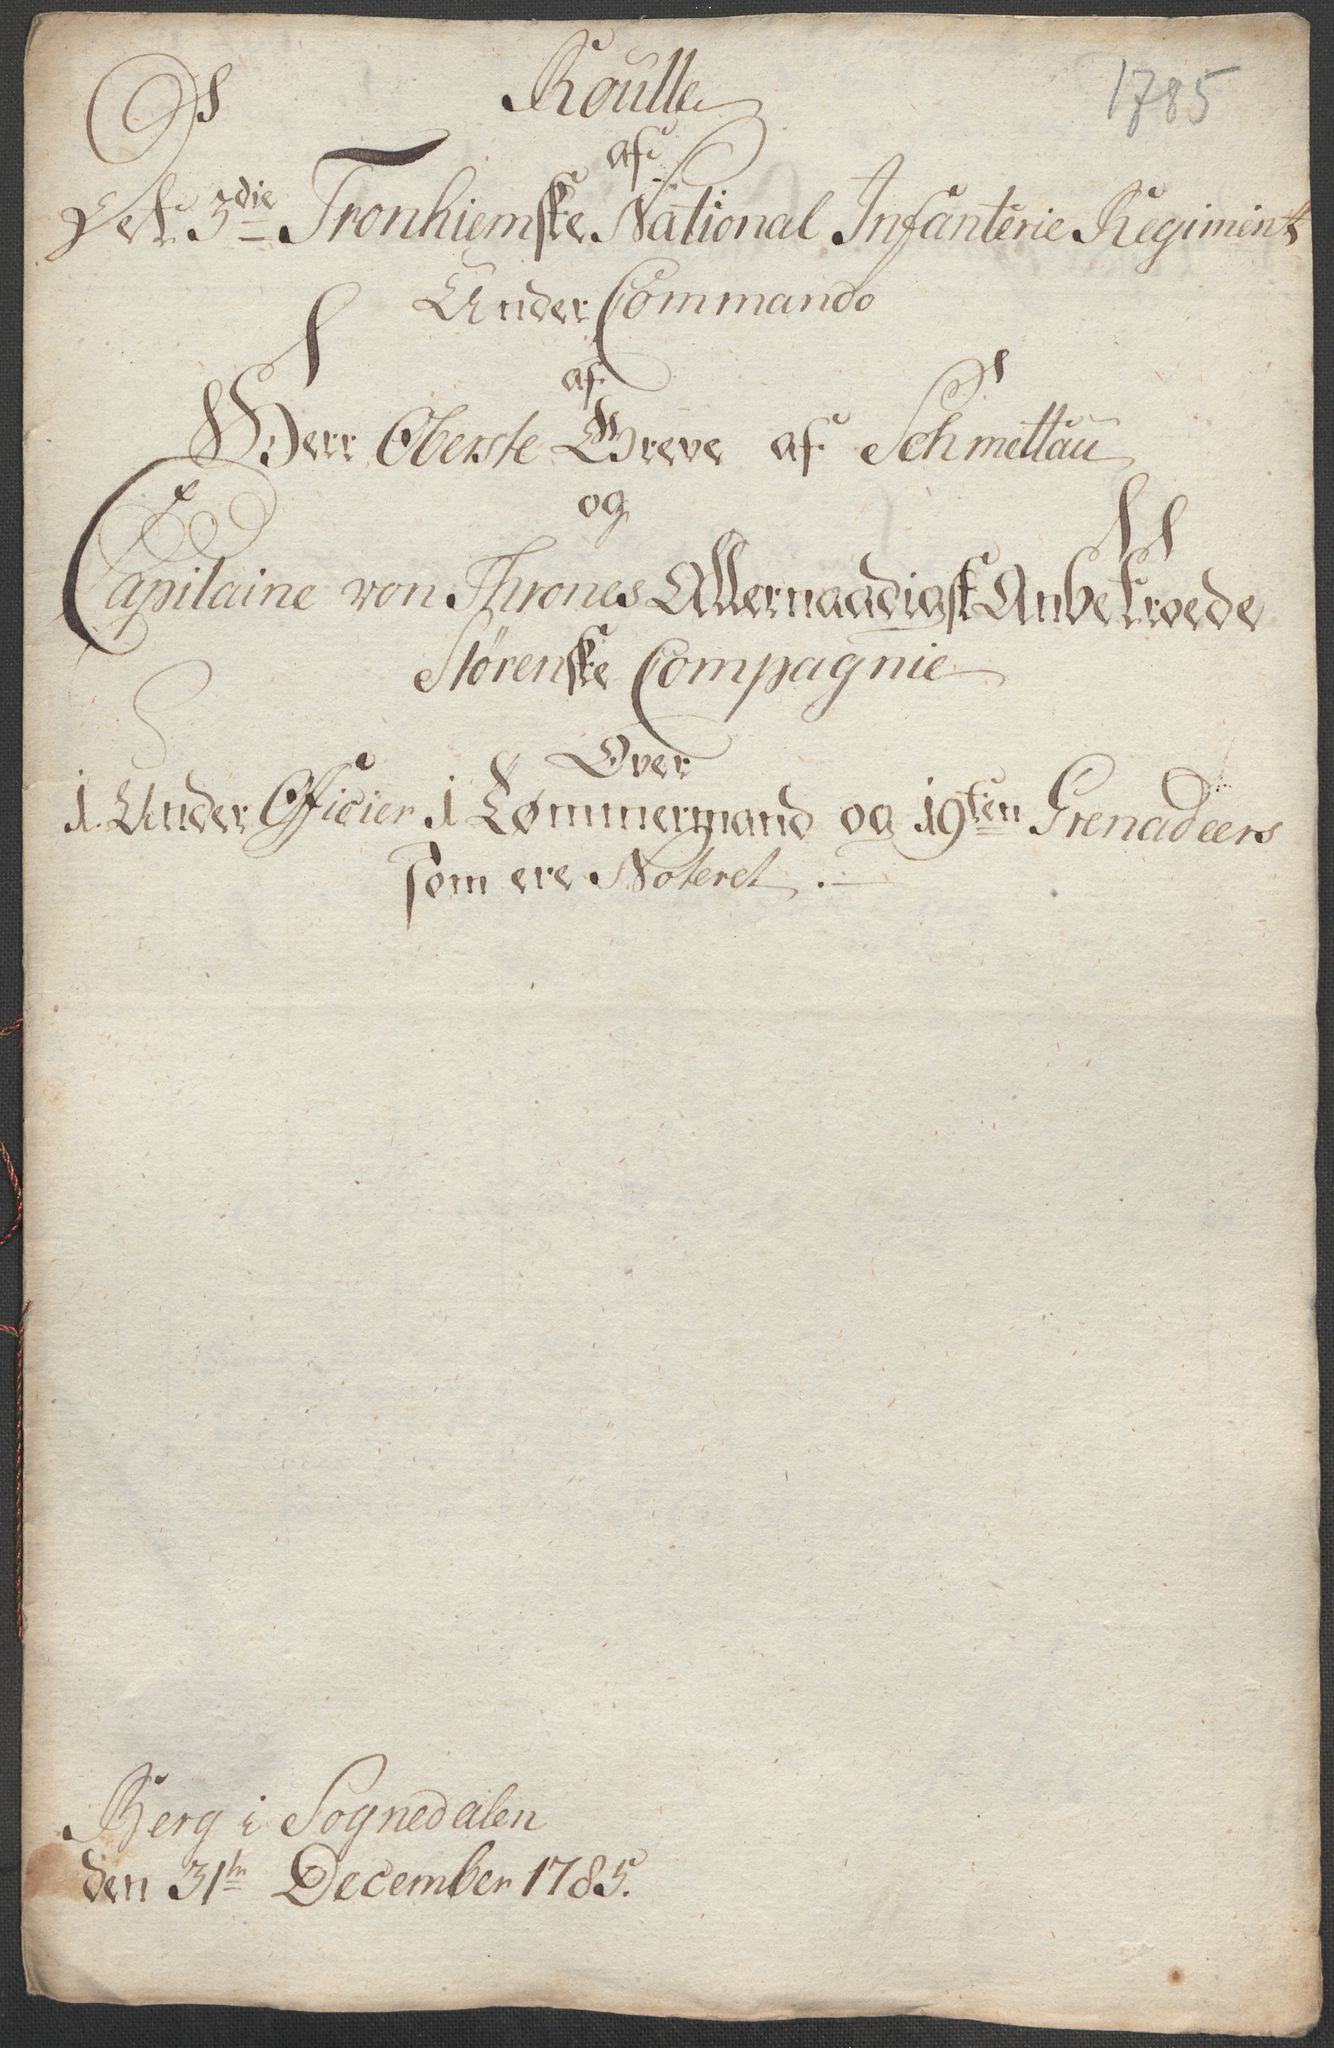 1785
Roulle
af
Det 3die Tronhiemske National Infanterie Regiment
Under Commando
af
Herr Oberste Greve af Schmettau
og
Capitaine von Thrones Allernaadigst Anbetroede
Størenske Compagnie
Over
1. Under Officier 1 Tømmermand og 19ten Grenadeers
som ere Noteret.
Berg i Sognedalen
den 31te December 1785.